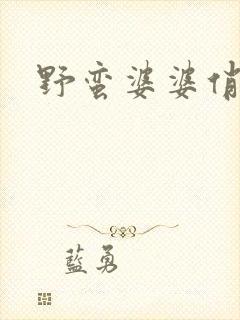 野蛮婆婆俏
藍勇